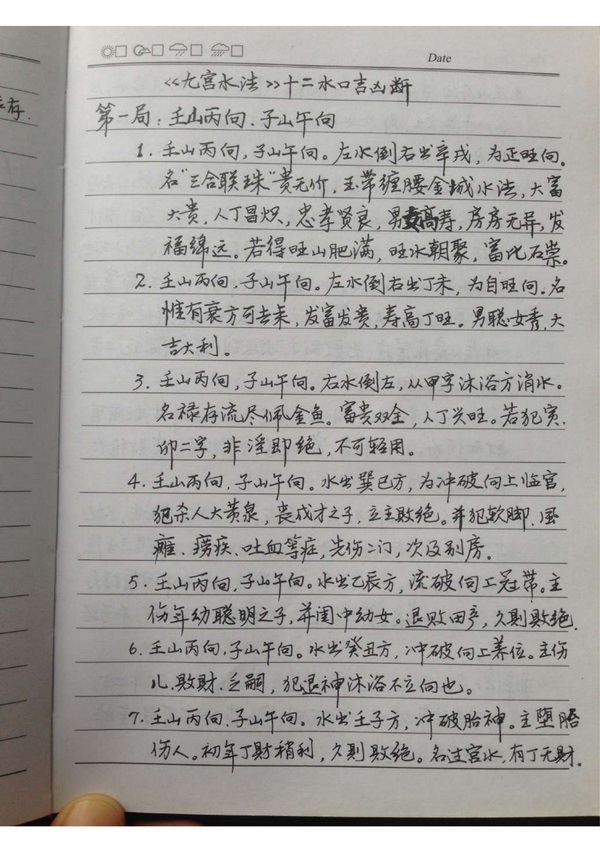 Date
《九宫水法》十二水口吉凶断
第一局:壬山丙向、子山午向
1. 壬山丙向,子山午向。左水倒右出辛戌,为正旺向。
名“三合联珠”贵无价,玉带缠腰金城水法,大富
大贵,人丁昌炽,忠孝贤良,男女高寿,房房无异,发
福绵远。若得旺山肥满,旺水朝聚,富比石崇。
2. 壬山丙向,子山午向。左水倒右出丁未,为自旺向。名
惟有衰方可去来,发富发贵,寿高丁旺。男聪女秀,大
吉大利。
3. 壬山丙向,子山午向。右水倒左,从甲字沐浴方消水。
名禄存流尽佩金鱼。富贵双全,人丁兴旺。若犯寅.
卯二字,非淫即绝,不可轻用。
4. 壬山丙向,子山午向。水出巽巳方,为冲破向上临官,
犯杀人大黄泉,丧成才之子,立主败绝。并犯软脚.风
瘫、痨疾、吐血等症,先伤二门,次及别房。
5. 壬山丙向,子山午向。水出乙辰方,流破向上冠带。主
伤年幼聪明之子,并闺中幼女。退败田产,久则败绝.
6. 壬山丙向,子山午向。水出癸丑方,冲破向上养位。主伤
儿.败财.乏嗣,犯退神沐浴不立向也。
7. 壬山丙向.子山午向。水出壬子方,冲破胎神。主堕
伤人。初年丁财稍利,久则败绝。名过宫水,有丁无财.
存.